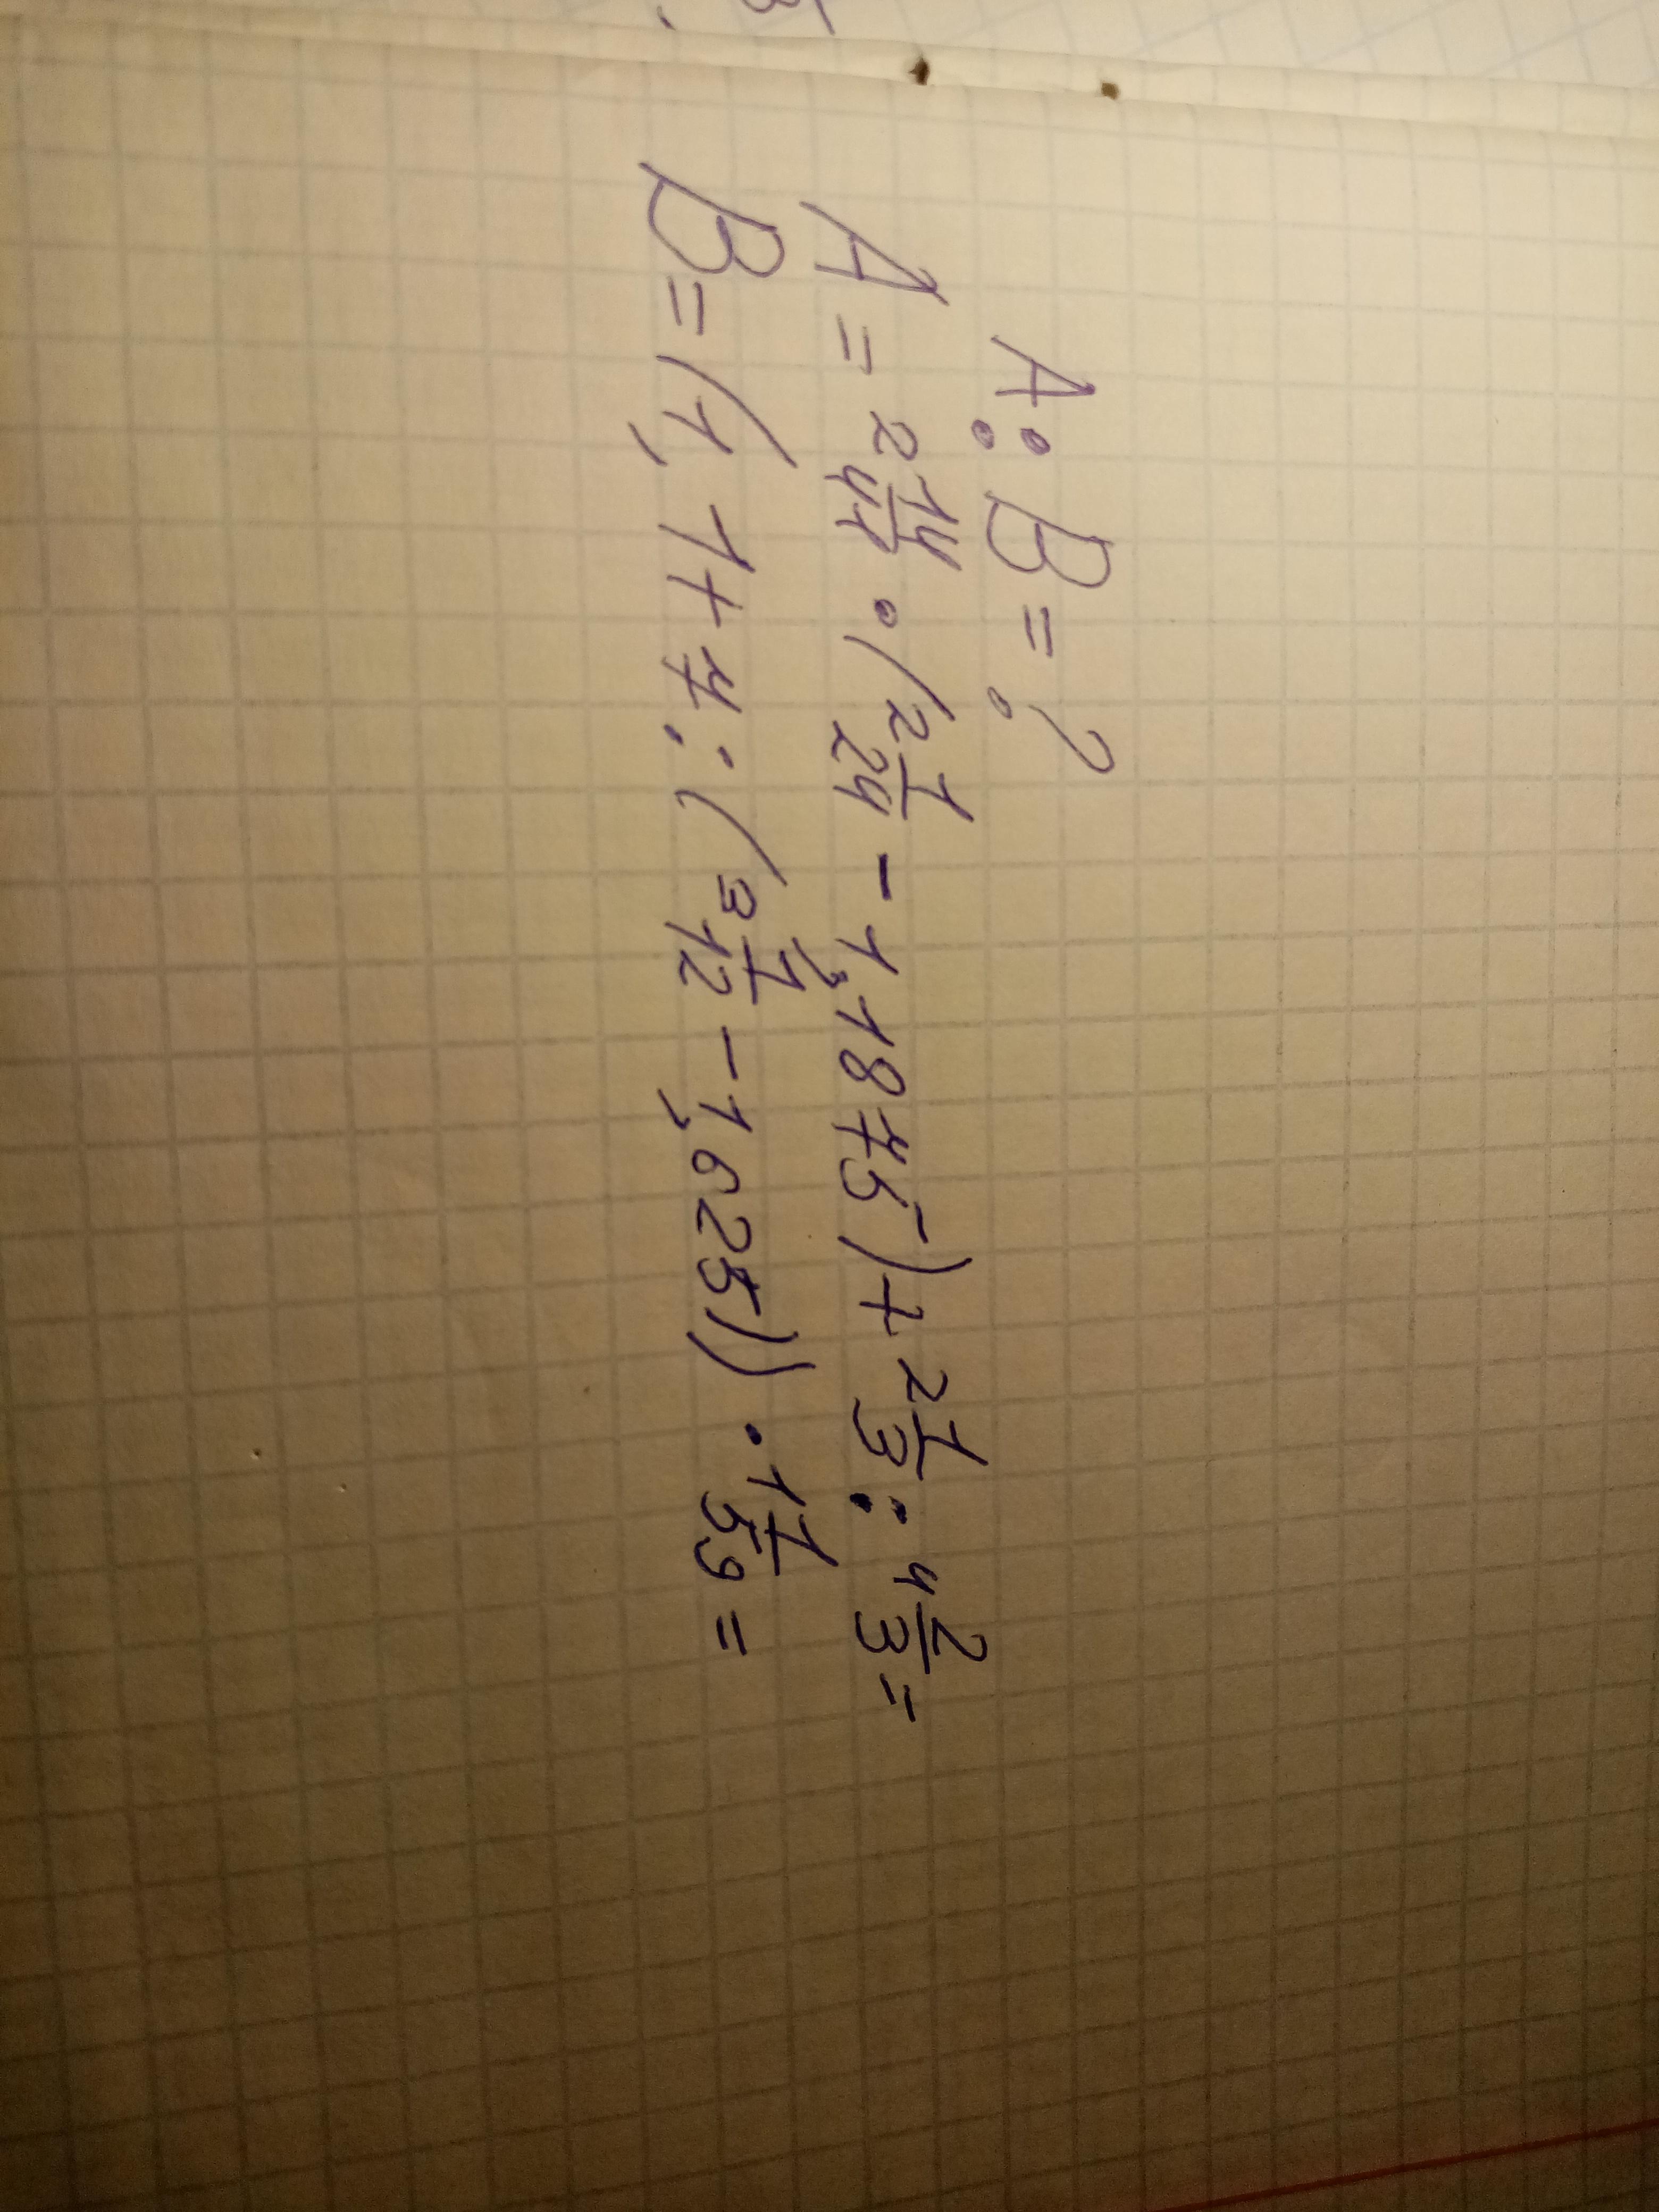 A:B=?
A = 2 14/41 · (2 1/24 - 1,1875) + 2 1/3 : 4 2/3 =
B = (1,1 + 7 : (3 1/12 - 1,625)) · 1 1/59 =